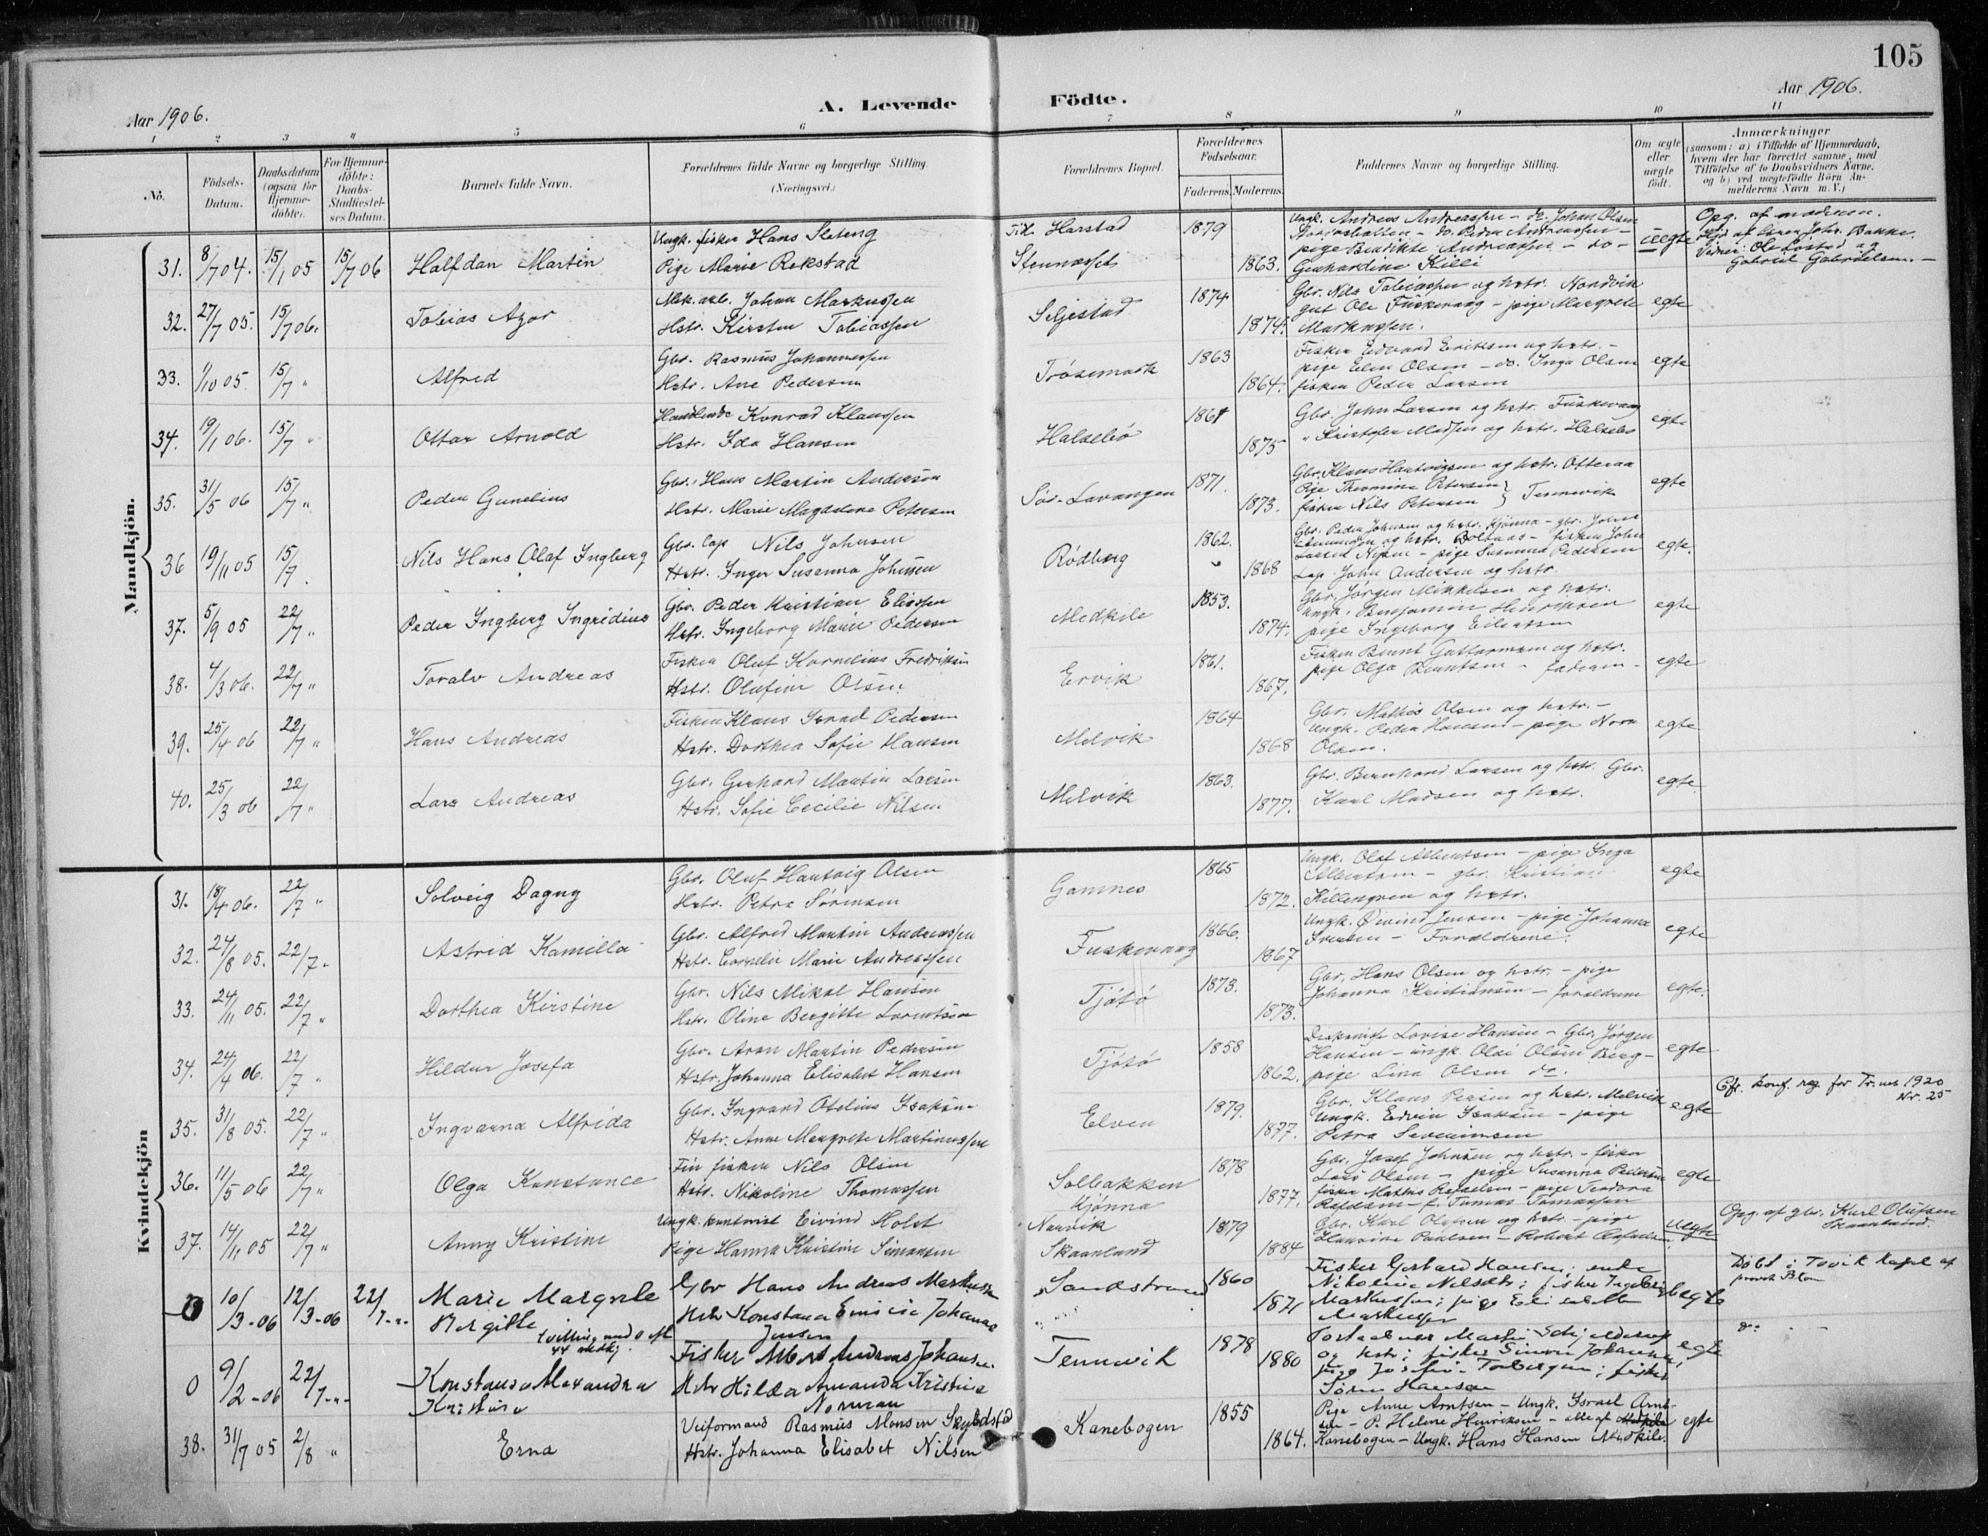 105
Aar 1906.
A. Levende Födte.
Aar 1906.
1 2 3 4 5 6 7 8 9 10 11
No.
Födsels-Datum.
Daabsdatum (ogsaa for Hjemme-döbte).
For Hjemme-döbte: Daabs-Stadfæstel-ses Datum.
Barnets fulde Navn.
Forældrenes fulde Navne og borgerlige Stilling
(Næringsvei.)
Forældrenes Bopæl.
Forældrenes Födselsaar.
Faderens. Moderens.
Faddernes Navne og borgerlige Stilling.
Om ægte eller uægte födt.
Anmærkninger
(saasom: a) i Tilfælde af Hjemmedaab, hvem der har forrettet samme, med Tilföielse af to Daabsvidners Navne, og b) ved uægtefödte Börn An-melderens Navn m. V.)
Mandkjön.
31. 8/7 04. 15/1 05 15/7 06 Halfdan Martin
Ungk. fisker Hans Sleteng
Pige Marie Rekstad
Harstad
1879 1863.
Ungk. Andreas Andreassen – do. Johan Olsen
pige Benedikte Andreassen – do –
Gerhardine Killi
uegte
Opg. af moderen.
Gabriel Gabrielsen. –
32. 27/7 05. 15/7 06. Tobias Azor
Johan Markussen
Hstr. Kirsten Tobiassen
Seljestad
1874 1874.
Gbr. Nils Tobiassen og hstr. Nordvik
gut Ole Fuskevaag – pige Margrete
Markussen.
egte
33. 1/10 05. 15/7 " Alfred
Gbr. Rasmus Johannessen
Hstr. Ane Pedersen
Trösemark
1863 1864.
Fisker Edvard Eriksen og hstr. –
pige Elen Olsen – do. Inga Olsen
fisker Peder Larsen
egte
34. 19/1 06. 15/7 " Ottar Arnold
Konrad Klaussen
Hstr. Ida Hansen
Halsebö
1867 1875
Gbr. John Larsen og hstr. Fuskevaag
" Kristofer Madsen og hstr. Halsebö
egte
35. 31/5 06 15/7 " Peder Gunelius
Gbr. Hans Martin Andersen
Hstr. Marie Magdalena Petersen
Sör-Lavangen
1871. 1873.
Gbr. Klaus Hartvigsen og hstr. Otteraa
Pige Thomine Petersen
fisker Nils Petersen } Tennevik
egte
36 19/11 05 15/7. Nils Hans Olaf Ingberg
Gbr. lap Nils Johnsen
Hstr. Inger Susanna Johnsen
Rödberg
1862. 1868
Gbr. Peder Johnsen og hstr. Kjönna – gbr. John
pige Susanna Pedersen
Lap John Andersen og hstr.
egte.
37. 5/9 05 22/7 " Peder Ingberg Ingridius
Gbr. Peder Kristian Eliassen
Hstr. Ingeborg Marie Pedersen
Medkile
1853. 1874.
Gbr. Jörgen Mikkelsen og hstr.
Ungk. Benjamin Henriksen
pige Ingeborg Eilertsen
egte
38. 4/3 06. 22/7 " Toralv Andreas
Fisker Oluf Kornelius Fredriksen
Hstr. Olufine Olsen.
Ervik
1861. 1867.
Fisker Bernt Guttormsen og hstr.
pige Olga Berntsen – faderen –
egte
39. 25/4 06 22/7 " Hans Andreas
Fisker Klaus Israel Pedersen
Hstr. Dorthea Sofie Hansen
Melvik
1864 1868
Gbr. Mathis Olsen og hstr. –
Ungk. Peder Hansen – pige Nora
Olsen.
egte
40. 25/3 06 22/7 " Lars Andreas
Gbr. Gerhard Martin Larsen
Hstr. Sofie Cecilie Nilsen
Melvik
1863. 1877.
Gbr. Bernhard Larsen og hstr. Gbr.
Karl Madsen og hstr.
egte.
Kvindekjön
31. 18/4 06. 22/7 " Solveig Dagny
Gbr. Oluf Hartvig Olsen
Hstr. Petra Sörensen
Gamnes
1865 1872.
Ungk. Olaf Albertsen – pige Inga
Albertsen – gbr. Kristian
Killengren og hstr.
egte
32. 24/8 05. 22/7 " Astrid Kamilla
Gbr. Alfred Martin Andreassen
Hstr. Cornelie Marie Andreassen
Fuskevaag
1866. 1867
Ungk. Öivind Jensen – pige Johanna
Iversen – Forældrene.
egte
33. 24/11 05. 22/7 " Dorthea Kirstine
Gbr. Nils Mikal Hansen
Hstr. Oline Bergitte Lorentsen
Tjötö
1873. 1873.
Gbr. Hans Olsen og hstr. – pige
Johanna Kristiansen – forældrene
egte.
34. 24/4 06. 22/7 " Hildur Josefa
Gbr. Aron Martin Pedersen
Hstr. Johanna Elisabet Hansen
Tjötö
1858 1862.
Lovise Hansen – Gbr. Jörgen
Hansen – ungk. Olai Olsen Berg –
pige Lina Olsen do.
egte
35. 31/8 05. 22/7 " Ingvarna Alfrida
Gbr. Ingvard Otelius Isaksen
Hstr. Anne Margrete Martinussen
Elven
1879. 1877.
Gbr. Klaus Persen og hstr. Melvik
Ungk. Edvin Isaksen – pige
Petra Severinsen
egte
Cfr. konf. reg. for Tr.nes 1920
Nr. 25
36. 11/5 06 22/7 " Olga Konstance
Fin fisker Nils Olsen
Hstr. Nikoline Thomassen
Solbakken
Kjönna
1878 1877.
Gbr. Josef Johnsen og hstr. – fisker
Lars Olsen – pige Susanna Pedersen
fisker Mathis Rafaelsen – pige Teodora
Rafaelsen – f. Tomas Tomassen
egte
37. 14/11 05 22/7 " Anny Kristine
Ungk. Eivind Holst
Pige Hanna Kristine Simonsen
Narvik
Skaanland
1879 1884
Gbr. Karl Olufsen og hstr. – pige
Hansine Paulsen – Robert
uegte
Opg. af gbr. Karl Olufsen
Skaanland.
0 10/3-06 12/3-06 22/7-" Marie Margrete
Bergitte
Gbr Hans Andreas Markussen
Hstr Konstanse Emilie Johanna
Jensen
Sandstrand
1860 1871
Fisker Gerhard Hansen; enke
Nikoline Nilsdtr; fisker Ingebrigt
Markussen; pige
Markussen
egte
Döbt i Tovik Kapel af
0 9/2-06 22/7-" Konstanse Alexandra
Kristine
Fisker Albert Andreas Johansen
Hstr Hilda Amanda Kristine
Norman
Tennevik
1878 1880
og hstr; fisker Simon Johansen;
pige Torbergsen; fisker
Sören Hansen
egte
38. 31/7 05 2/8 " Erna
Veiformand Rasmus Monsen
Hstr. Johanna Elisabet Nilsen
Kanebogen
1855 1864.
Pige Anne Arntsen – Ungk. Israel Arnt-
sen – P. Helene Henriksen – alle af
Kanebogen – Ungk. Hans Hansen Medkile.
egte